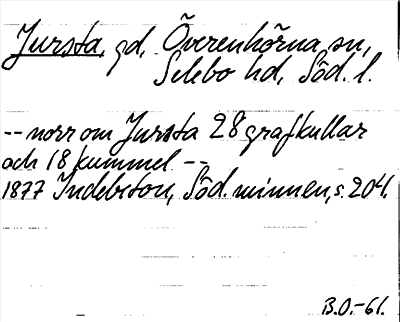 Jursta, gd, Överenhörna sn,
Selebo hd, Söd. l.
-- norr om Jursta 28 grafkullar
och 18 kummel --
1877 Indebetou, Söd. minnen, s. 204.
B.O.-61.